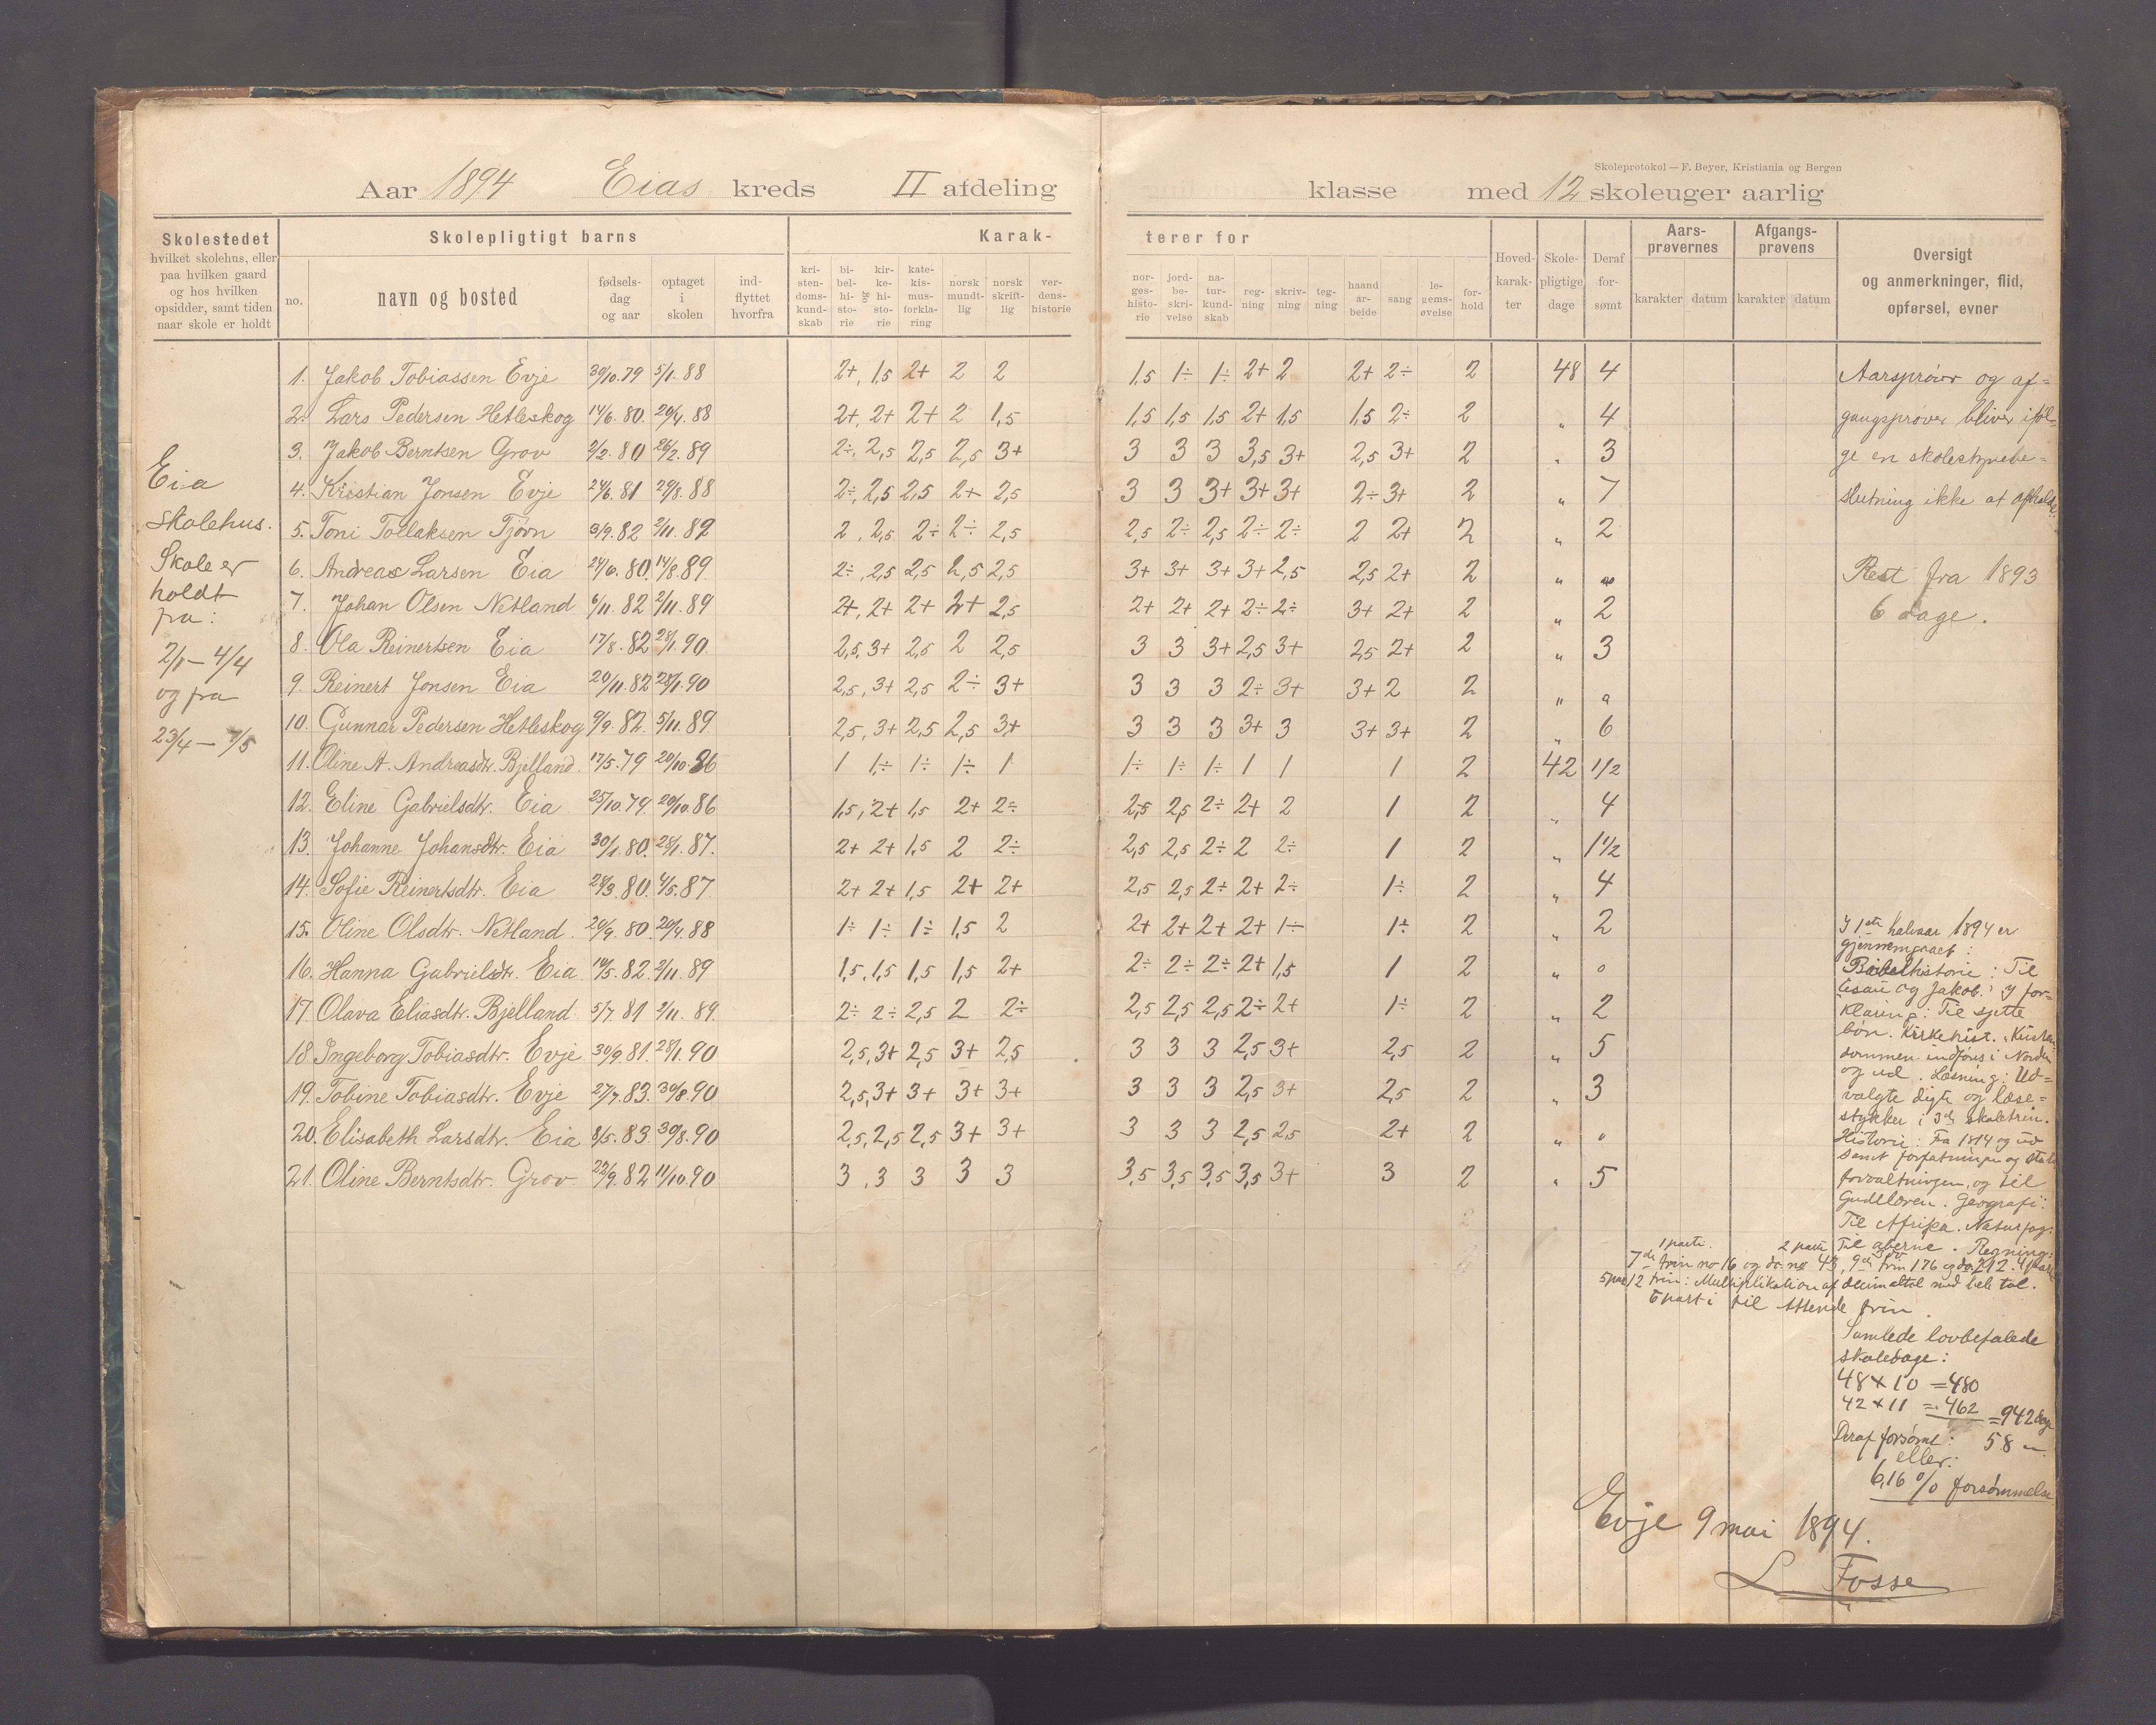 Skoleprotokol — F. Beyer, Kristiania og Bergen
Aar 1894 Eias kreds II afdeling klasse med 12 skoleuger aarlig
Skolestedet
hvilket skolehus, eller
paa hvilken gaard
og hos hvilken
opsidder, samt tiden
naar skole er holdt
Skolepligtigt barns
no.
navn og bosted
fødsels-
dag
og aar
optaget
i
skolen
ind-
flyttet
hvorfra
Karak-
kri-
sten-
doms-
kund-
skab
bi-
bel-
hi-
sto-
rie
og
kir-
ke-
hi-
sto-
rie
kate-
kis-
mus-
forkla-
ring
norsk
mundt-
lig
norsk
skrift-
lig
ver-
dens-
historie
terer for
nor-
ges-
histo-
rie
jord-
be-
skri-
velse
na-
tur-
kund-
skab
reg-
ning
skriv-
ning
teg-
ning
haand
ar-
beide
sang
le-
gems-
øvelse
for-
hold
Hoved-
karak-
ter
Skole-
pligtige
dage
Deraf
for-
sømt
Aars-
prøvernes
karakter datum
Afgangs-
prøvens
karakter datum
Oversigt
og anmerkninger, flid,
opførsel, evner
Eia
skolehus.
Skole er
holdt
fra:
2/1 — 4/4
og fra
23/4 — 7/5
1. Jakob Tobiassen Evje 30/10.79 5/1.88 2+, 1,5 2+ 2 2 1,5 1÷ 1÷ 2+ 2 2+ 2÷ 2 48 4
2. Lars Pedersen Hetleskog 14/6.80. 20/4.88 2+, 2+ 2+ 2 1,5 1,5 1,5 1,5 2+ 1,5 1,5 2÷ 2 „ 4
3. Jakob Berntsen Grov 2/2.80 26/2.89 2÷, 2,5 2,5 2,5 3+ 3 3 3 3,5 3+ 2,5 3+ 2 „ 3
4. Kristian Jonsen Evje 24/6.81 29/8.88 2÷, 2,5 2,5 2+ 2,5 3 3 3+ 3+ 3+ 2÷ 3+ 2 „ 7
5. Toni Tollaksen Tjörn 3/9.82 2/11.89 2, 2,5 2÷ 2÷ 2,5 2,5 2÷ 2,5 2÷ 2÷ 2 2+ 2 „ 2
6. Andreas Larsen Eia 24/6.80. 14/8.89 2÷, 2,5 2,5 2,5 2,5 3+ 3+ 3+ 3+ 2,5 2,5 2+ 2 „
7. Johan Olsen Netland 6/11.82 2/11.89 2+, 2+ 2+ 2+ 2,5 2+ 2+ 2+ 2÷ 2÷ 3+ 2+ 2 „ 2
8. Ola Reinertsen Eia 17/8.82 28/1.90 2,5, 3+ 2,5 2 2,5 3 3 3+ 2,5 3+ 2,5 2+ 2 „ 3
9. Reinert Jonsen Eia 20/11.82 28/1.90 2,5, 3+ 2,5 2÷ 3+ 3 3 3 2÷ 3+ 3+ 2 2 „
10. Gunnar Pedersen Hetleskog 9/9.82. 5/11.89 2,5, 3+ 2,5 2,5 3+ 3 3 3 3+ 3 3+ 3+ 2 „ 6
11. Oline A. Andreasdtr. Bjelland. 17/5.79 20/10.86 1 1÷ 1÷ 1÷ 1 1÷ 1÷ 1÷ 1 1 1 2 42 1/2
12. Eline Gabrielsdtr. Eia 25/10.79. 20/10.86 1,5, 2+ 1,5 2+ 2÷ 2,5 2,5 2÷ 2+ 2 1 2 „ 4
13. Johanne Johansdtr. Eia 30/1.80. 28/1.87. 2+ 2+ 1,5 2 2÷ 2,5 2,5 2÷ 2 2÷ 1 2 „ 1 1/2
14. Sofie Reinertsdtr. Eia 28/3.80. 4/5.87 2+ 2+ 1,5 2+ 2+ 2,5 2,5 2÷ 2+ 2÷ 1÷ 2 „ 4
15. Oline Olsdtr. Netland. 20/9.80. 20/4.88 1÷ 1÷ 1÷ 1,5 2 2+ 2+ 2+ 2+ 1÷ 1÷ 2 „ 2
16. Hanna Gabrielsdtr. Eia 14/5.82. 2/11.89 1,5, 1,5 1,5 1,5 2+ 2÷ 2÷ 2÷ 2+ 1,5 1 2 „ 0
17. Olava Eliasdtr. Bjelland 5/7.81 2/11.89. 2÷ 2÷ 2,5 2 2÷ 2,5 2,5 2,5 2÷ 2+ 1÷ 2 „ 2
18. Ingeborg Tobiasdtr. Evje 30/9.81. 28/1.90 2,5, 3+ 2,5 3+ 2,5 3 3 3 2,5 3+ 2,5 2 „ 5
19. Tobine Tobiasdtr. Evje 27/7.83. 30/8.90 2,5, 3+ 3+ 3+ 3+ 3 3 3 2,5 3+ 2,5 2 „ 3
20. Elisabeth Larsdtr. Eia 8/5.83. 30/8.90 2,5, 2,5 2,5 3+ 3+ 3 3 3 2,5 2,5 2+ 2 „ 0
21. Oline Berntsdtr. Grov 22/9.82 11/10.90 3, 3 3 3 3 3,5 3,5 3,5 3,5 3+ 3 2 „ 5
Aarsprøver og af=
gangsprøver bliver iføl-
ge en skolestyrebe=
slutning ikke at afholde.
Rest fra 1893
6 dage.
I 1ste halvaar 1894 er
gjennemgaaet:
Bibelhistorie: Til
Esau og Jakob. I for=
klaring: Til sjette
bøn. Kirkehist. „Kristen
dommen indføres i Norden
og ud. Læsning: Ud=
valgte digte og læse=
stykker i 3de skoletrin.
Historie: Fra 1814 og ud
samt forfatningen og stats
forvaltningen, og til
Geografi:
Til Afrika. Naturfag:
Til aberne. Regning:
1 parti. 2 parti
7de trin no 16 og do. no 43, 9de trin 176 og do. 292. 4 parti
5 parti 12 trin: Multiplikation af decimaltal med hele tal.
6 parti til attende trin.
Samlede lovbefalede
skoledage:
48 × 10 = 480
42 × 11 = 462 = 942 dage
Deraf forsømt: 58 „
eller:
6,16 % forsømmelse
Evje 9 mai 1894.
L. Fosse